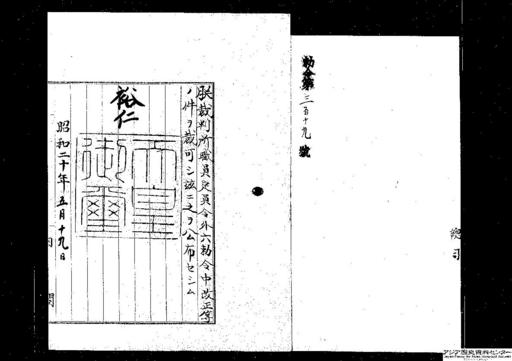 勅令第三百十九號
朕裁判所職員定員令外六勅令中改正等
ノ件ヲ裁可シ玆ニ之ヲ公布セシム
裕仁
天皇御璽
昭和二十年五月十九日
アジア歴史資料センター